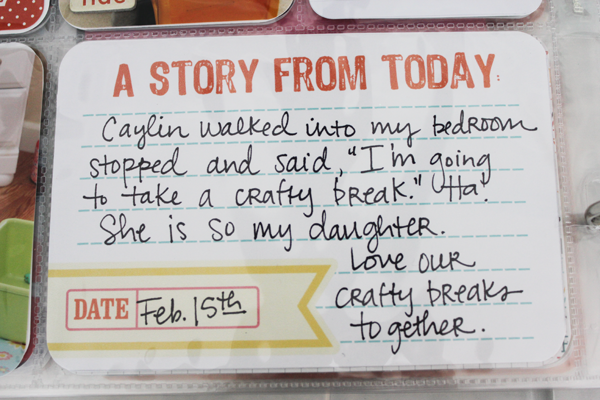 A STORY FROM TODAY:
Caylin walked into my bedroom
stopped and said, "I'm going
to take a crafty break." Ha!
She is so my daughter.
Love our
crafty breaks
together.
DATE Feb. 15th